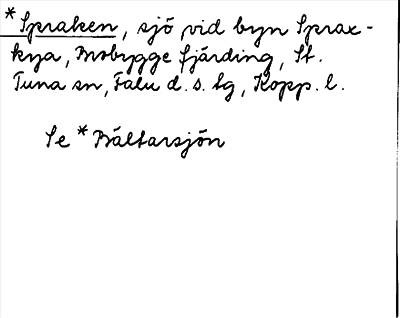 *Spraken, sjö vid byn Sprax-
kya, Mobygge fjärding, St.
Tuna sn, Falu d. s. tg, Kopp. l.
Se *Bältarsjön